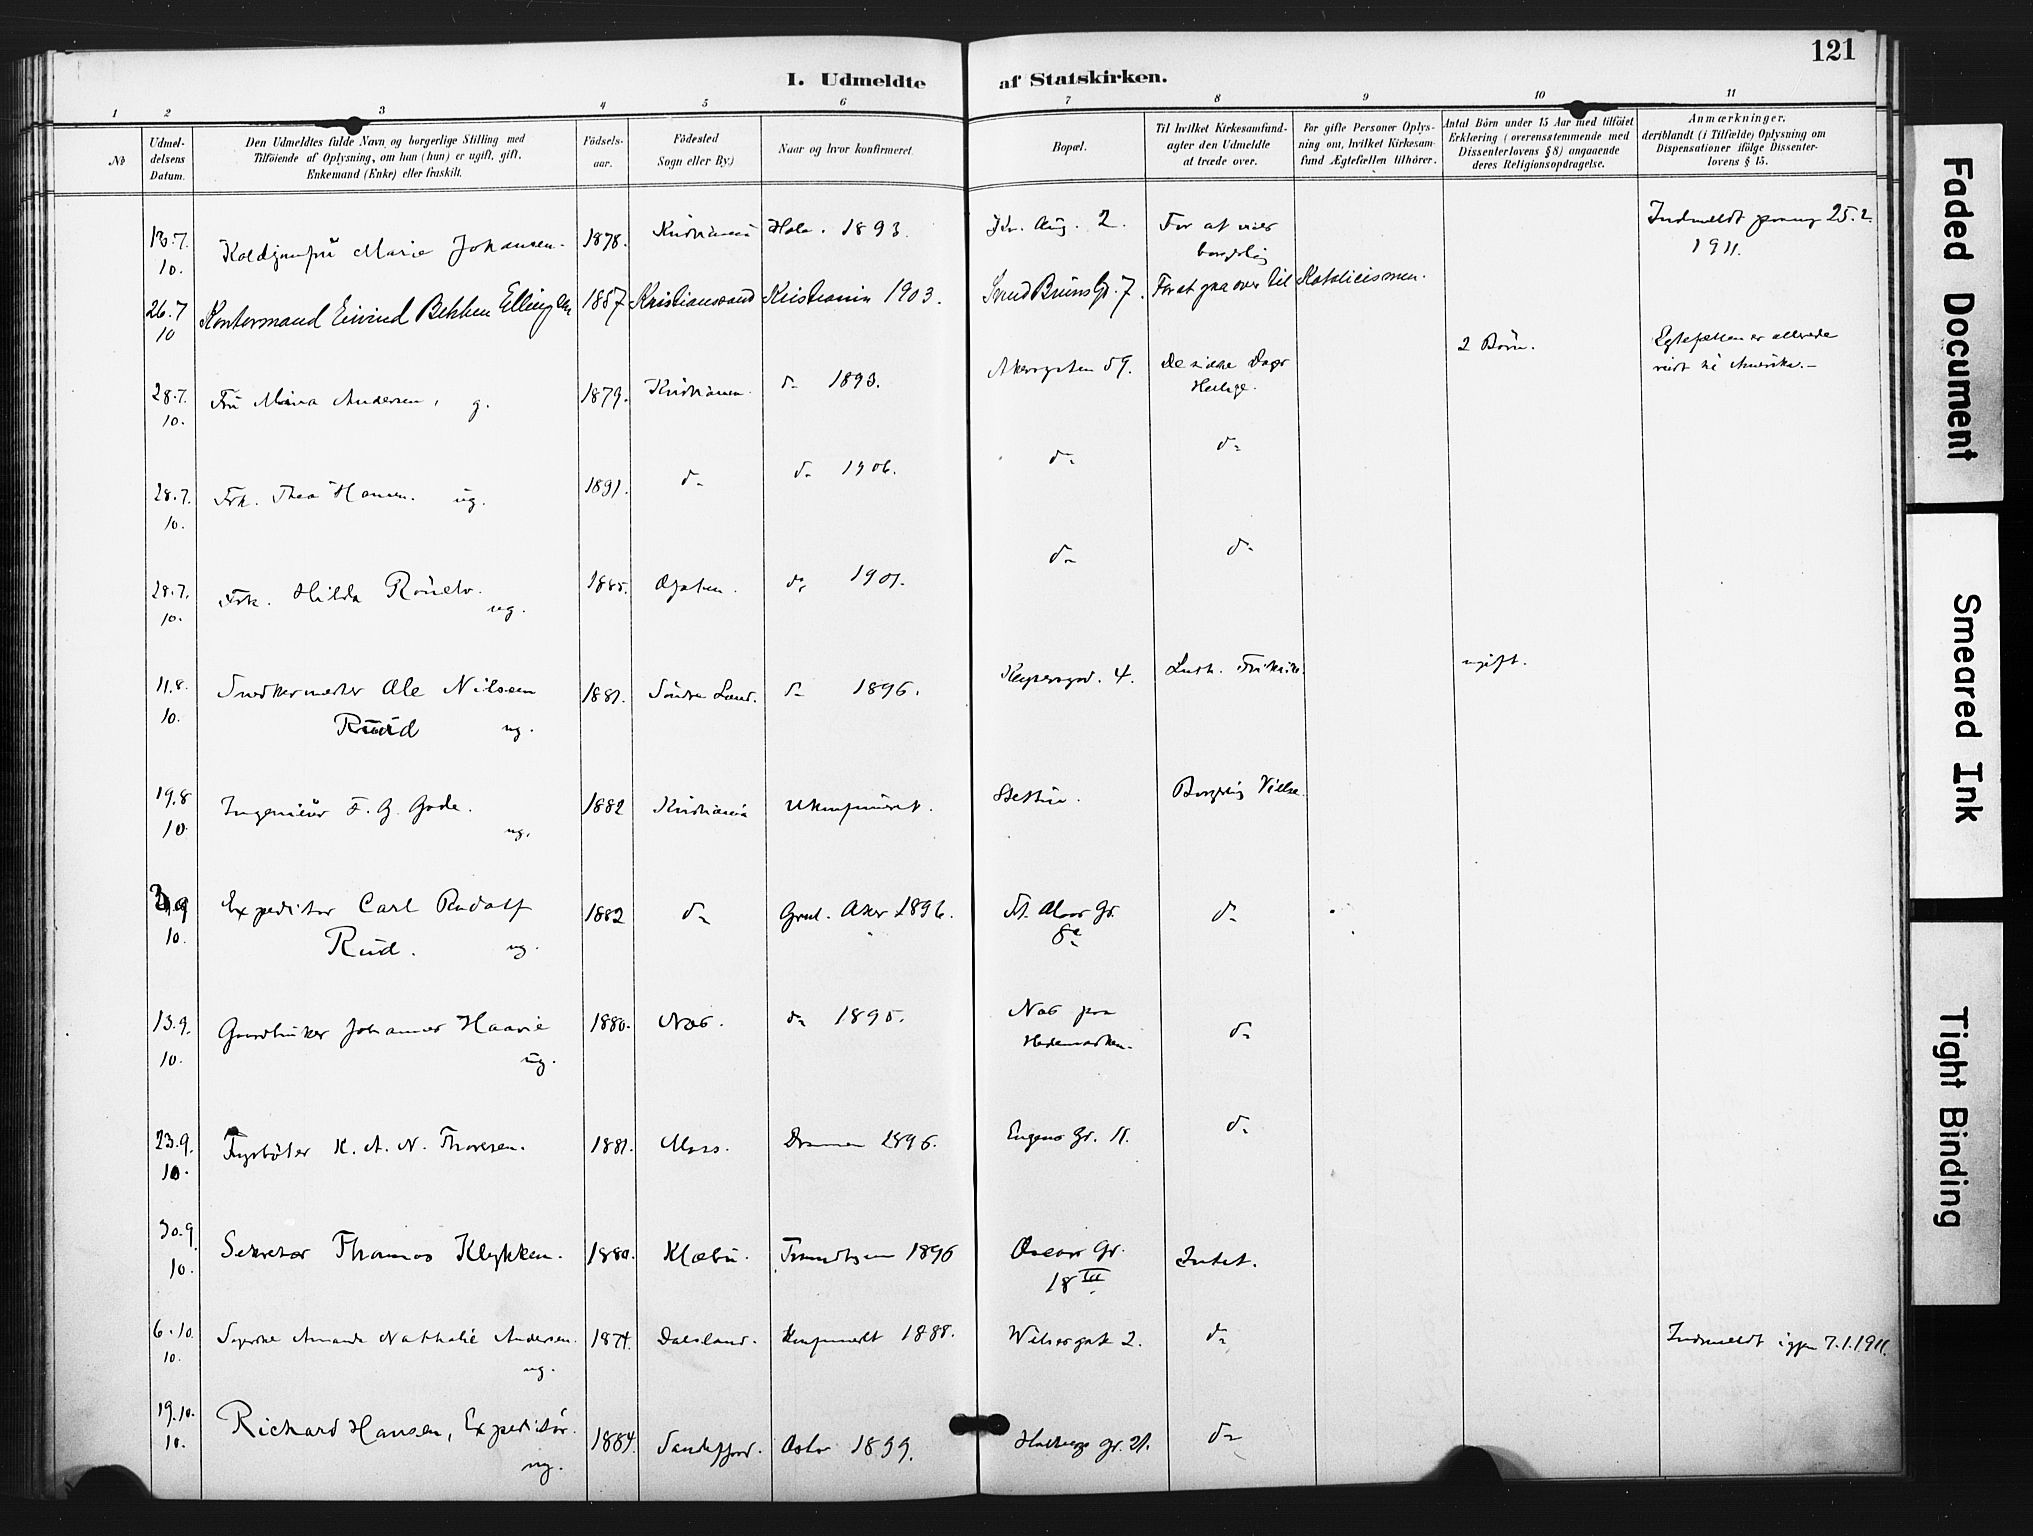 121
I. Udmeldte af Statskirken.
1 2 3 4 5 6 7 8 9 10 11
No
Udmel-
delsens
Datum.
Den Udmeldtes fulde Navn og borgerlige Stilling med
Tilföiende af Oplysning, om han (hun) er ugift, gift,
Enkemand (Enke) eller fraskilt.
Födsels-
aar.
Födested
Sogn eller By.)
Naar og hvor konfirmeret.
Bopæl.
Til hvilket Kirkesamfund-
agter den Udmeldte
at træde over.
For gifte Personer Oplys-
ning om, hvilket Kirkesam-
fund Ægtefællen tilhörer.
Antal Börn under 15 Aar med tilföiet
Erklæring (overensstemmende med
Dissenterlovens § 8) angaaende
deres Religionsopdragelse.
Anmærkninger,
deriblandt (i Tilfælde) Oplysning om
Dispensationer ifölge Dissenter-
lovens § 15.
13.7.
10. Marie Johansen. 1878. Kristiania Hole. 1893. Kr. Aug. 2. For at vies
borgerlig
Indmeldt paany 25.2.
1911.
26.7
10 Kontormand Eivind Bekken Ellingsen 1887 Kristianssand Kristiania 1903. For at gaa over til Katolicismen.
28.7.
10. Fru Mina Andersen, g. 1879. Kristiania. do 1893. Akersgaten 59. De sidste Dages
Hellige.
2 Börn.
Egtefællen er allerede
reist til Amerika.—
28.7.
10. Frk. Thea Hansen. ug. 1891. do do 1906. do do
28.7.
10. Frk. Hilda
ug. 1885. do 1901. do do
11.8.
10. Snedkermester Ole Nilsen
Ruud ug. 1881. Söndre Land. do 1896. Keysersgd. 4. Luth. Frikirke. ugift.
19.8
10 Ingeniör F. G. Gade.
ug. 1882 Kristiania Ukonfirmeret. Stettin. Borgerlig Vielse.
9
10. Expeditör Carl Rudolf
Rud. ug. 1882 do Aker 1896. St. Olavs Gd.
8a do
13.9.
10. Gaardbruker Johannes Haavie
ug. 1880. Næs. do 1895. Næs paa
Hedemarken. do
23.9.
10. Fyrböter K. A. N. Thoresen. 1881. Moss. Drammen 1896. Eugens Gd. 11. do
30.9.
10. Sekretær Thomas Klykken. 1880. Klæbu. Trondhjem 1896 Oscars Gd.
18 III Intet.
6.10.
10. Amanda Nathalie Andersen.
ug. 1874. Dalsland. Konfirmeret 1888. Wilsesgate 2. do Indmeldt igjen 7.1.1911.
19.10.
10. Richard Hansen, Expeditör.
ug. 1884. Sandefjord. Oslo 1899. Holbergs Gd. 21. do
Faded Document
Smeared Ink
Tight Binding